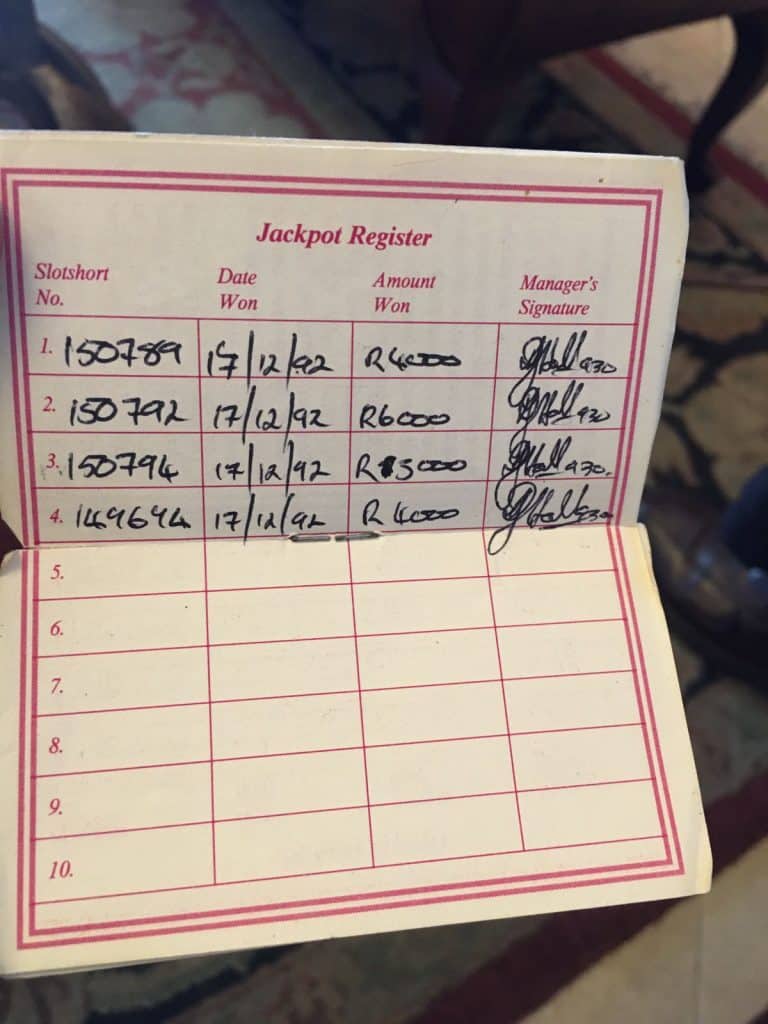 Jackpot Register
Slotshort No. Date Won Amount Won Manager's Signature
1. 150789 17/12/92 R4000 930
2. 150792 17/12/92 R6000 930
3. 150794 17/12/92 R5000 930.
4. 149694 17/12/92 R4000 930
5.
6.
7.
8.
9.
10.